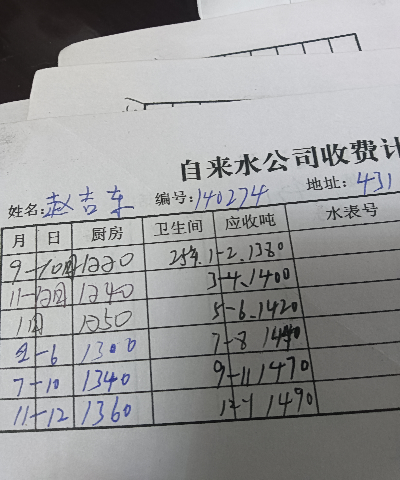 自来水公司收费计
姓名:赵吉东 编号:140274 地址:431
月 日 厨房 卫生间 应收吨 水表号
9-10月 1220 25年.1-2.1380
11-12月 1240 3-4.1400
1月 1250 5-6.1420
2-6 1300 7-8 1440
7-10 1340 9-11 1470
11-12 1360 12-1 1490